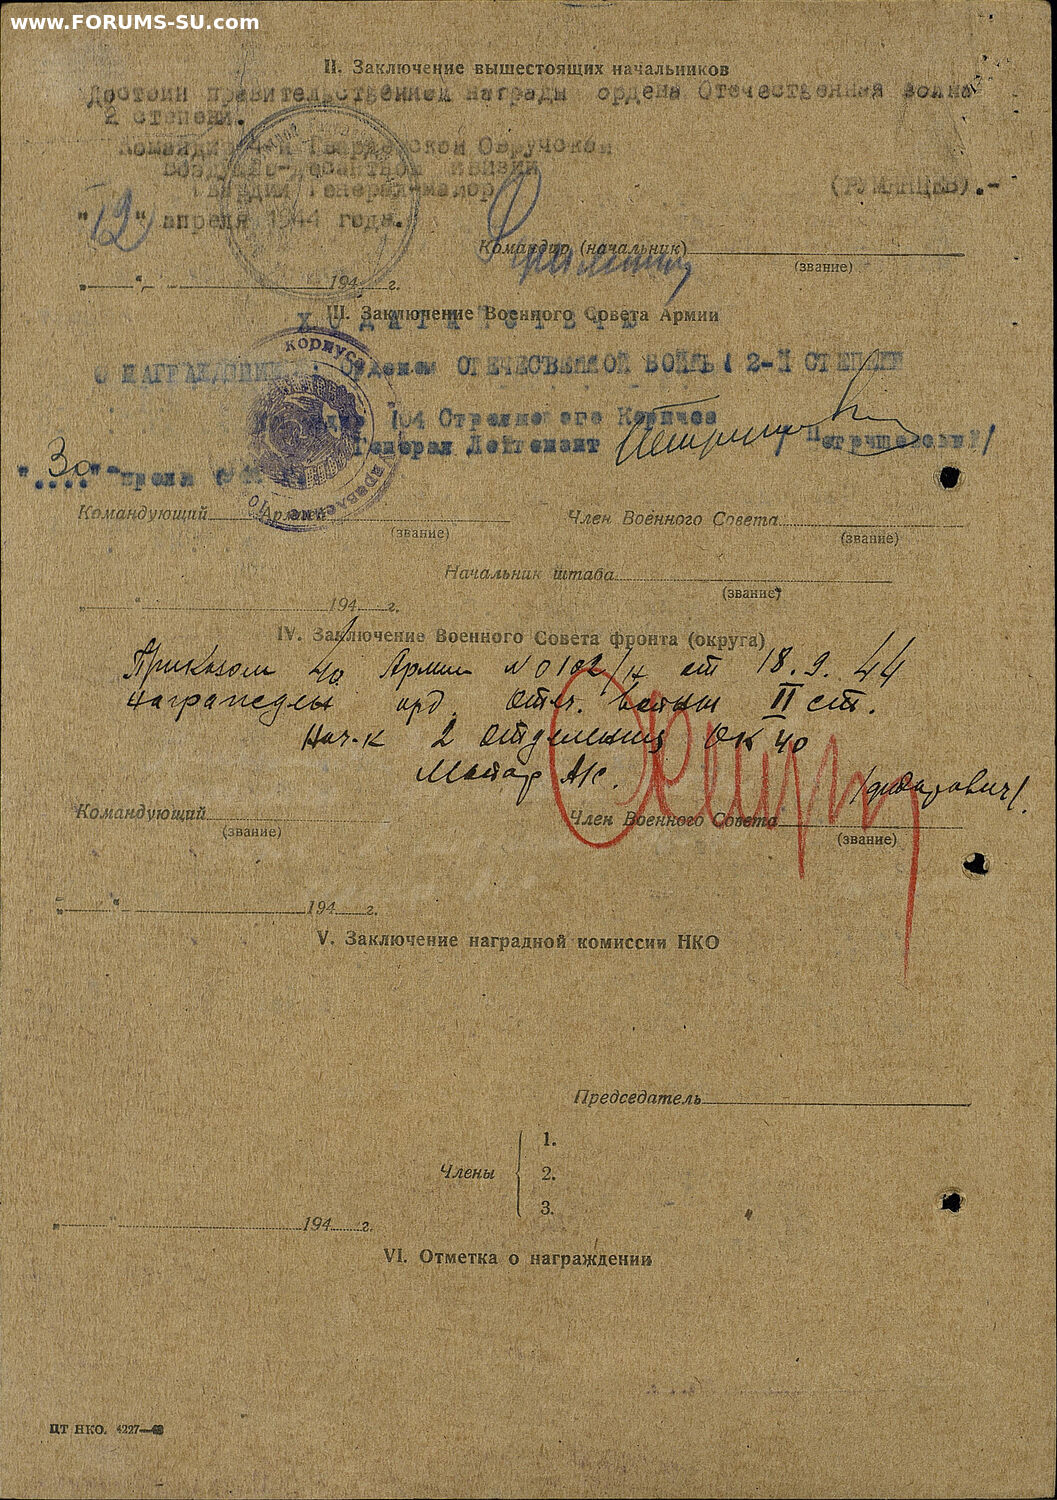 www.FORUMS-SU.com
II. Заключение вышестоящих начальников
Достоин правительственной награды ордена Отечественная война
2 степени.
Командир 4-й Гвардейской Овручской
воздушно-десантной дивизии
Гвардии Генерал-майор (РУМЯНЦЕВ).-
"12" апреля 1944 года.
Командир (начальник)
(звание)
" " 194 г.
III. Заключение Военного Совета Армии
ХОДАТАЙСТВУЮ
О НАГРАЖДЕНИИ: Орденом ОТЕЧЕСТВЕННОЙ ВОЙНЫ 2-Й СТЕПЕНИ
корпуса
104 Стрелкового Корпуса
Генерал Лейтенант /Петрушевский/
"30"
управление
Командующий Армией
(звание)
Член Военного Совета
(звание)
Начальник штаба
(звание)
" 194 г.
IV. Заключение Военного Совета фронта (округа)
Приказом 40 Армии N 0102/н от 18.9.44
Награжден орд. Отеч. войны II ст.
Нач-к 2 отделения ОК 40
Майор А/с.
Командующий
(звание)
Член Военного Совета
(звание)
" " 194 г.
V. Заключение наградной комиссии НКО
Председатель
Члены
1.
2.
3.
" " 194 г.
VI. Отметка о награждении
ЦТ НКО. 4227—